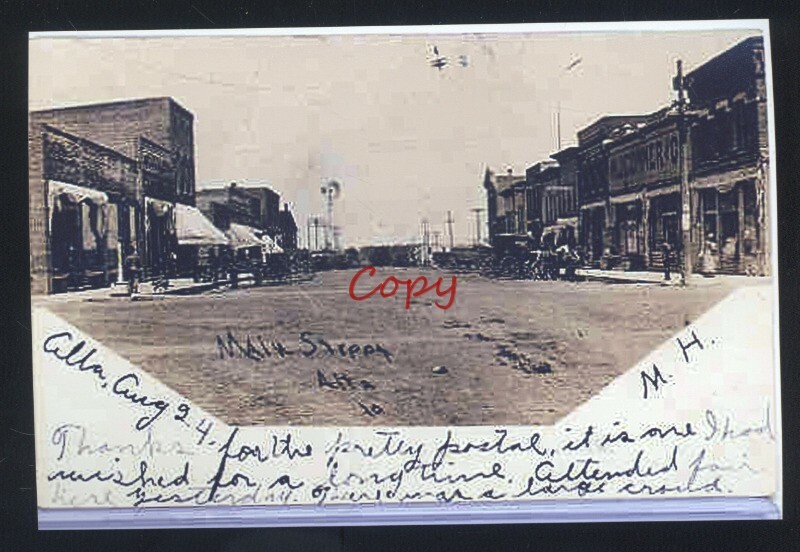 Copy
Main Street
Alta
Io
M. H.
Alta, Aug 24.
Thanks for the pretty postal, it is one I had
wished for a long time. Attended fair
here yesterday. There was a large crowd.